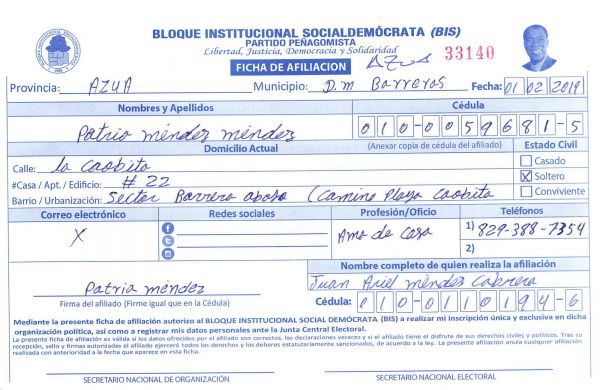 BLOQUE INSTITUCIONAL SOCIALDEMÓCRATA (BIS)
PARTIDO PEÑAGOMISTA
Libertad, Justicia, Democracia y Solidaridad
FICHA DE AFILIACION
Azua
33140
Provincia: AZUA Municipio: D.M Barreras Fecha: 01 02 2019
Nombres y Apellidos Cédula
Patria méndez méndez 010-0059681-5
Domicilio Actual (Anexar copia de cédula del afiliado) Estado Civil
Calle: La Caobita Casado
#Casa / Apt. / Edificio: # 22 X Soltero
Barrio / Urbanización: Sector Barrera abajo (Camino Playa Caobita Conviviente
Correo electrónico Redes sociales Profesión/Oficio Teléfonos
X Ama de Casa 1) 829-388-7354
2)
Nombre completo de quien realiza la afiliación
Patria méndez Juan Ariel méndez Cabrera
Firma del afiliado (Firme igual que en la Cédula) Cédula: 010-0110194-6
Mediante la presente ficha de afiliación autorizo al BLOQUE INSTITUCIONAL SOCIAL DEMÓCRATA (BIS) a realizar mi inscripción única y exclusiva en dicha
organización política, así como a registrar mis datos personales ante la Junta Central Electoral.
La presente ficha de afiliación es válida si los datos ofrecidos por el afiliado son correctos, las declaraciones veraces y si el afiliado tiene el disfrute de sus derechos civiles y políticos. Tras su
recepción, sello y firmas autorizadas el afiliado ejercerá todos los derechos y los deberes estatutariamente sancionados, de acuerdo a la ley. La presente afiliación anula cualquier afiliación
realizada con anterioridad a la fecha que aparece en esta ficha.
SECRETARIO NACIONAL DE ORGANIZACIÓN SECRETARIO NACIONAL ELECTORAL